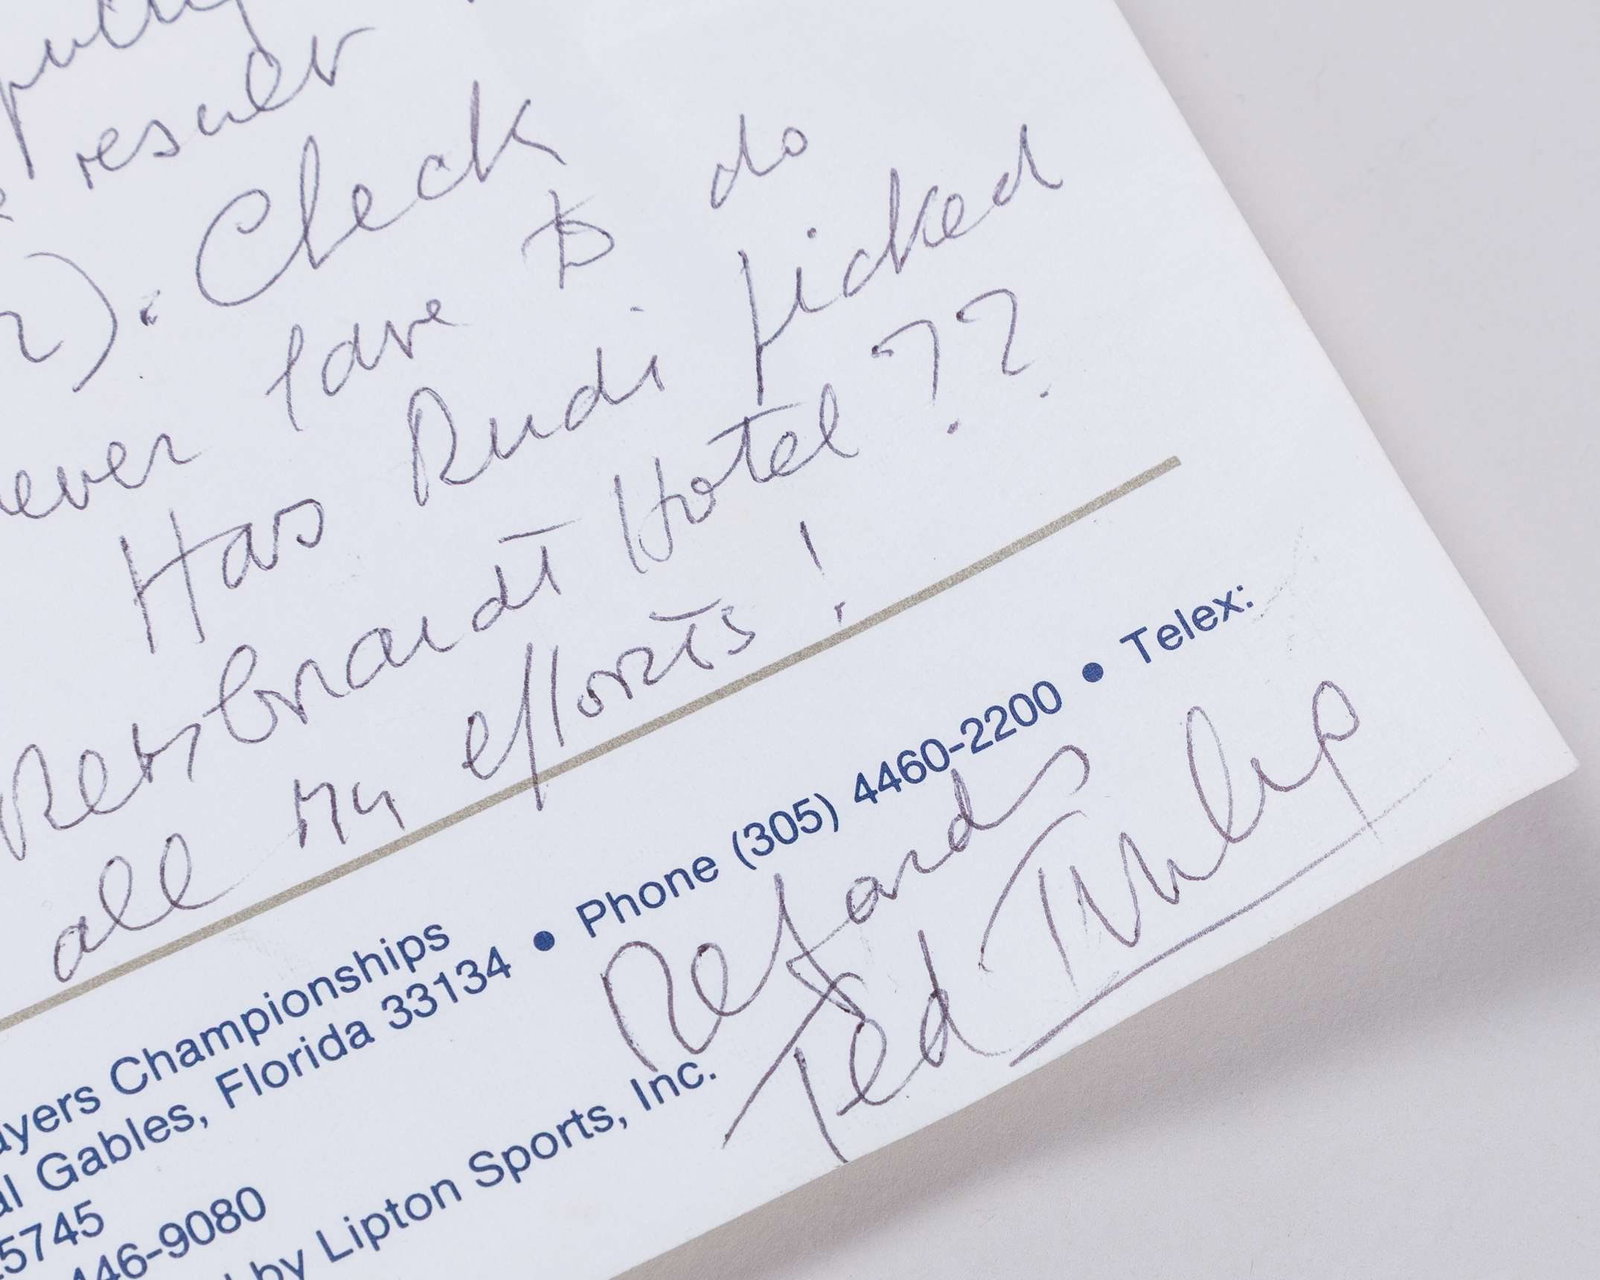 result
2). Check
ever have to do
Has Rudi picked
Rembrandt Hotel ??
all my efforts!
ayers Championships
al Gables, Florida 33134 • Phone (305) 4460-2200 • Telex:
5745
446-9080
by Lipton Sports, Inc.
Regards
Ted Tinling